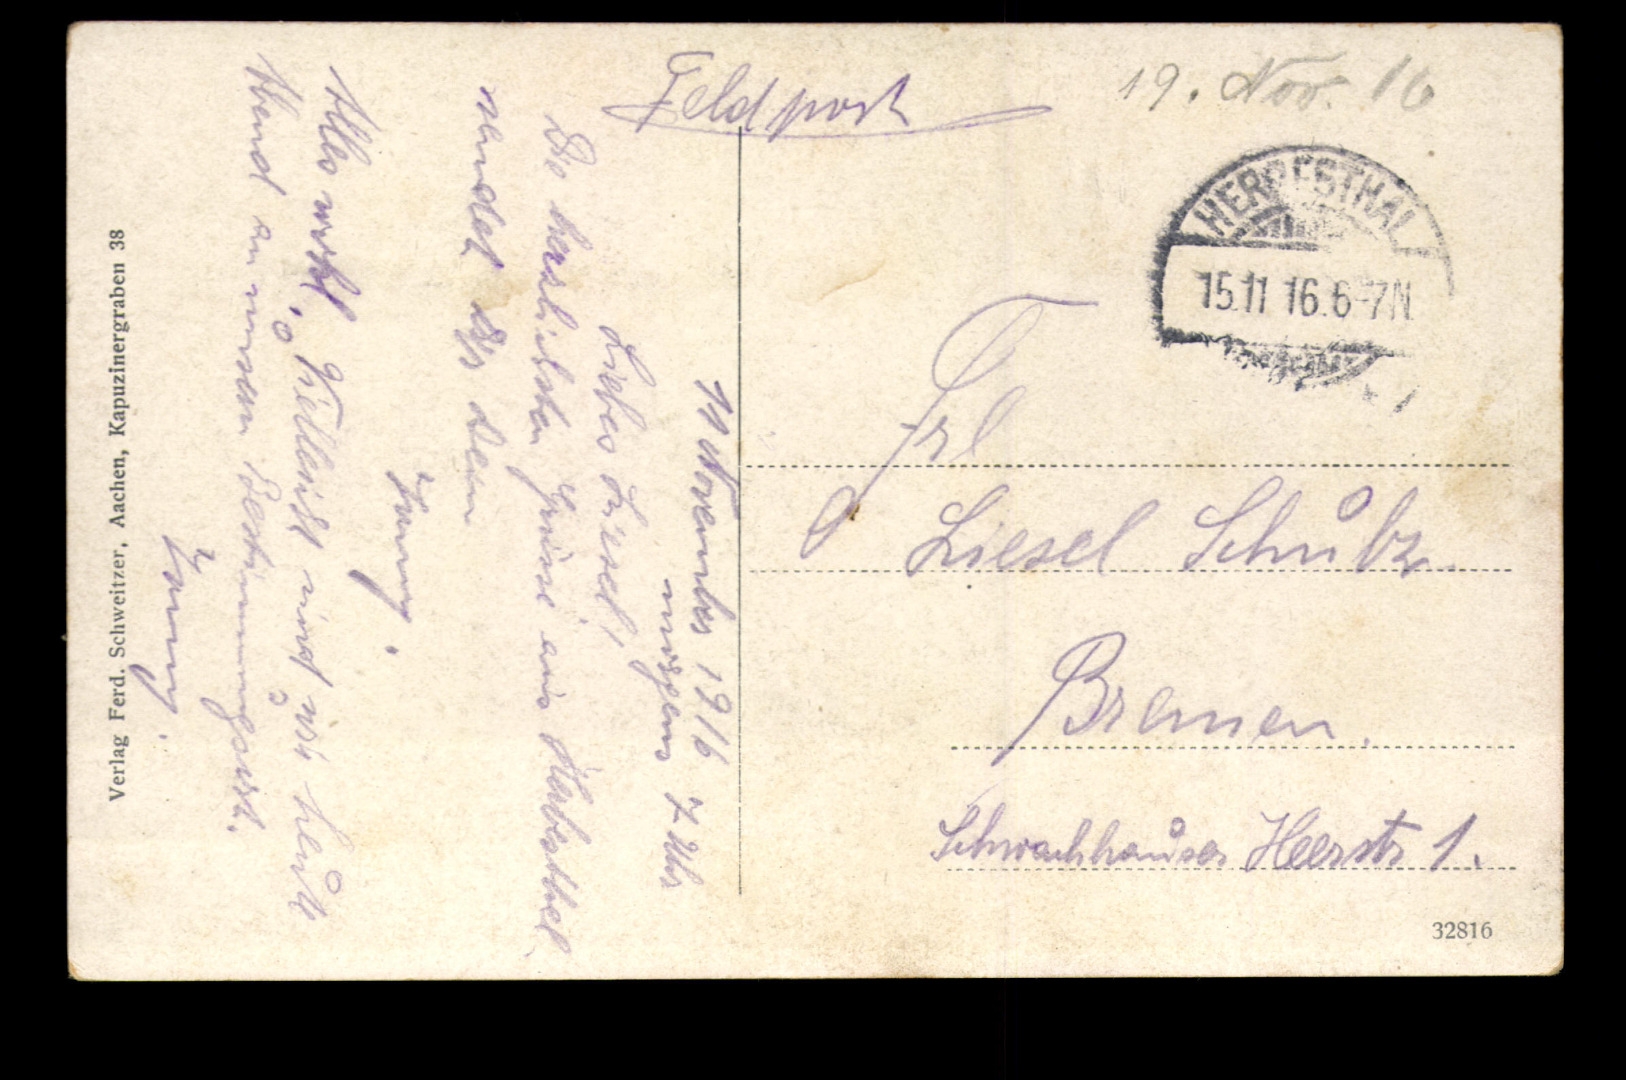 Feldpost
19. Nov. 16
HERBESTHAL
15.11 16.6-7N.
Frl
Liesel Schütz.
Bremen.
Schwachhauser Heerstr 1.
32816
11 November 1916
morgens 7 Uhr
Liebes Liesel!
Die herzlichsten Grüsse aus Herbesthal
sendet Dir dein
Alles wohl, Vielleicht sind wir heute
Abend an unserem Bestimmungsort.
Verlag Ferd. Schweitzer, Aachen, Kapuzinergraben 38